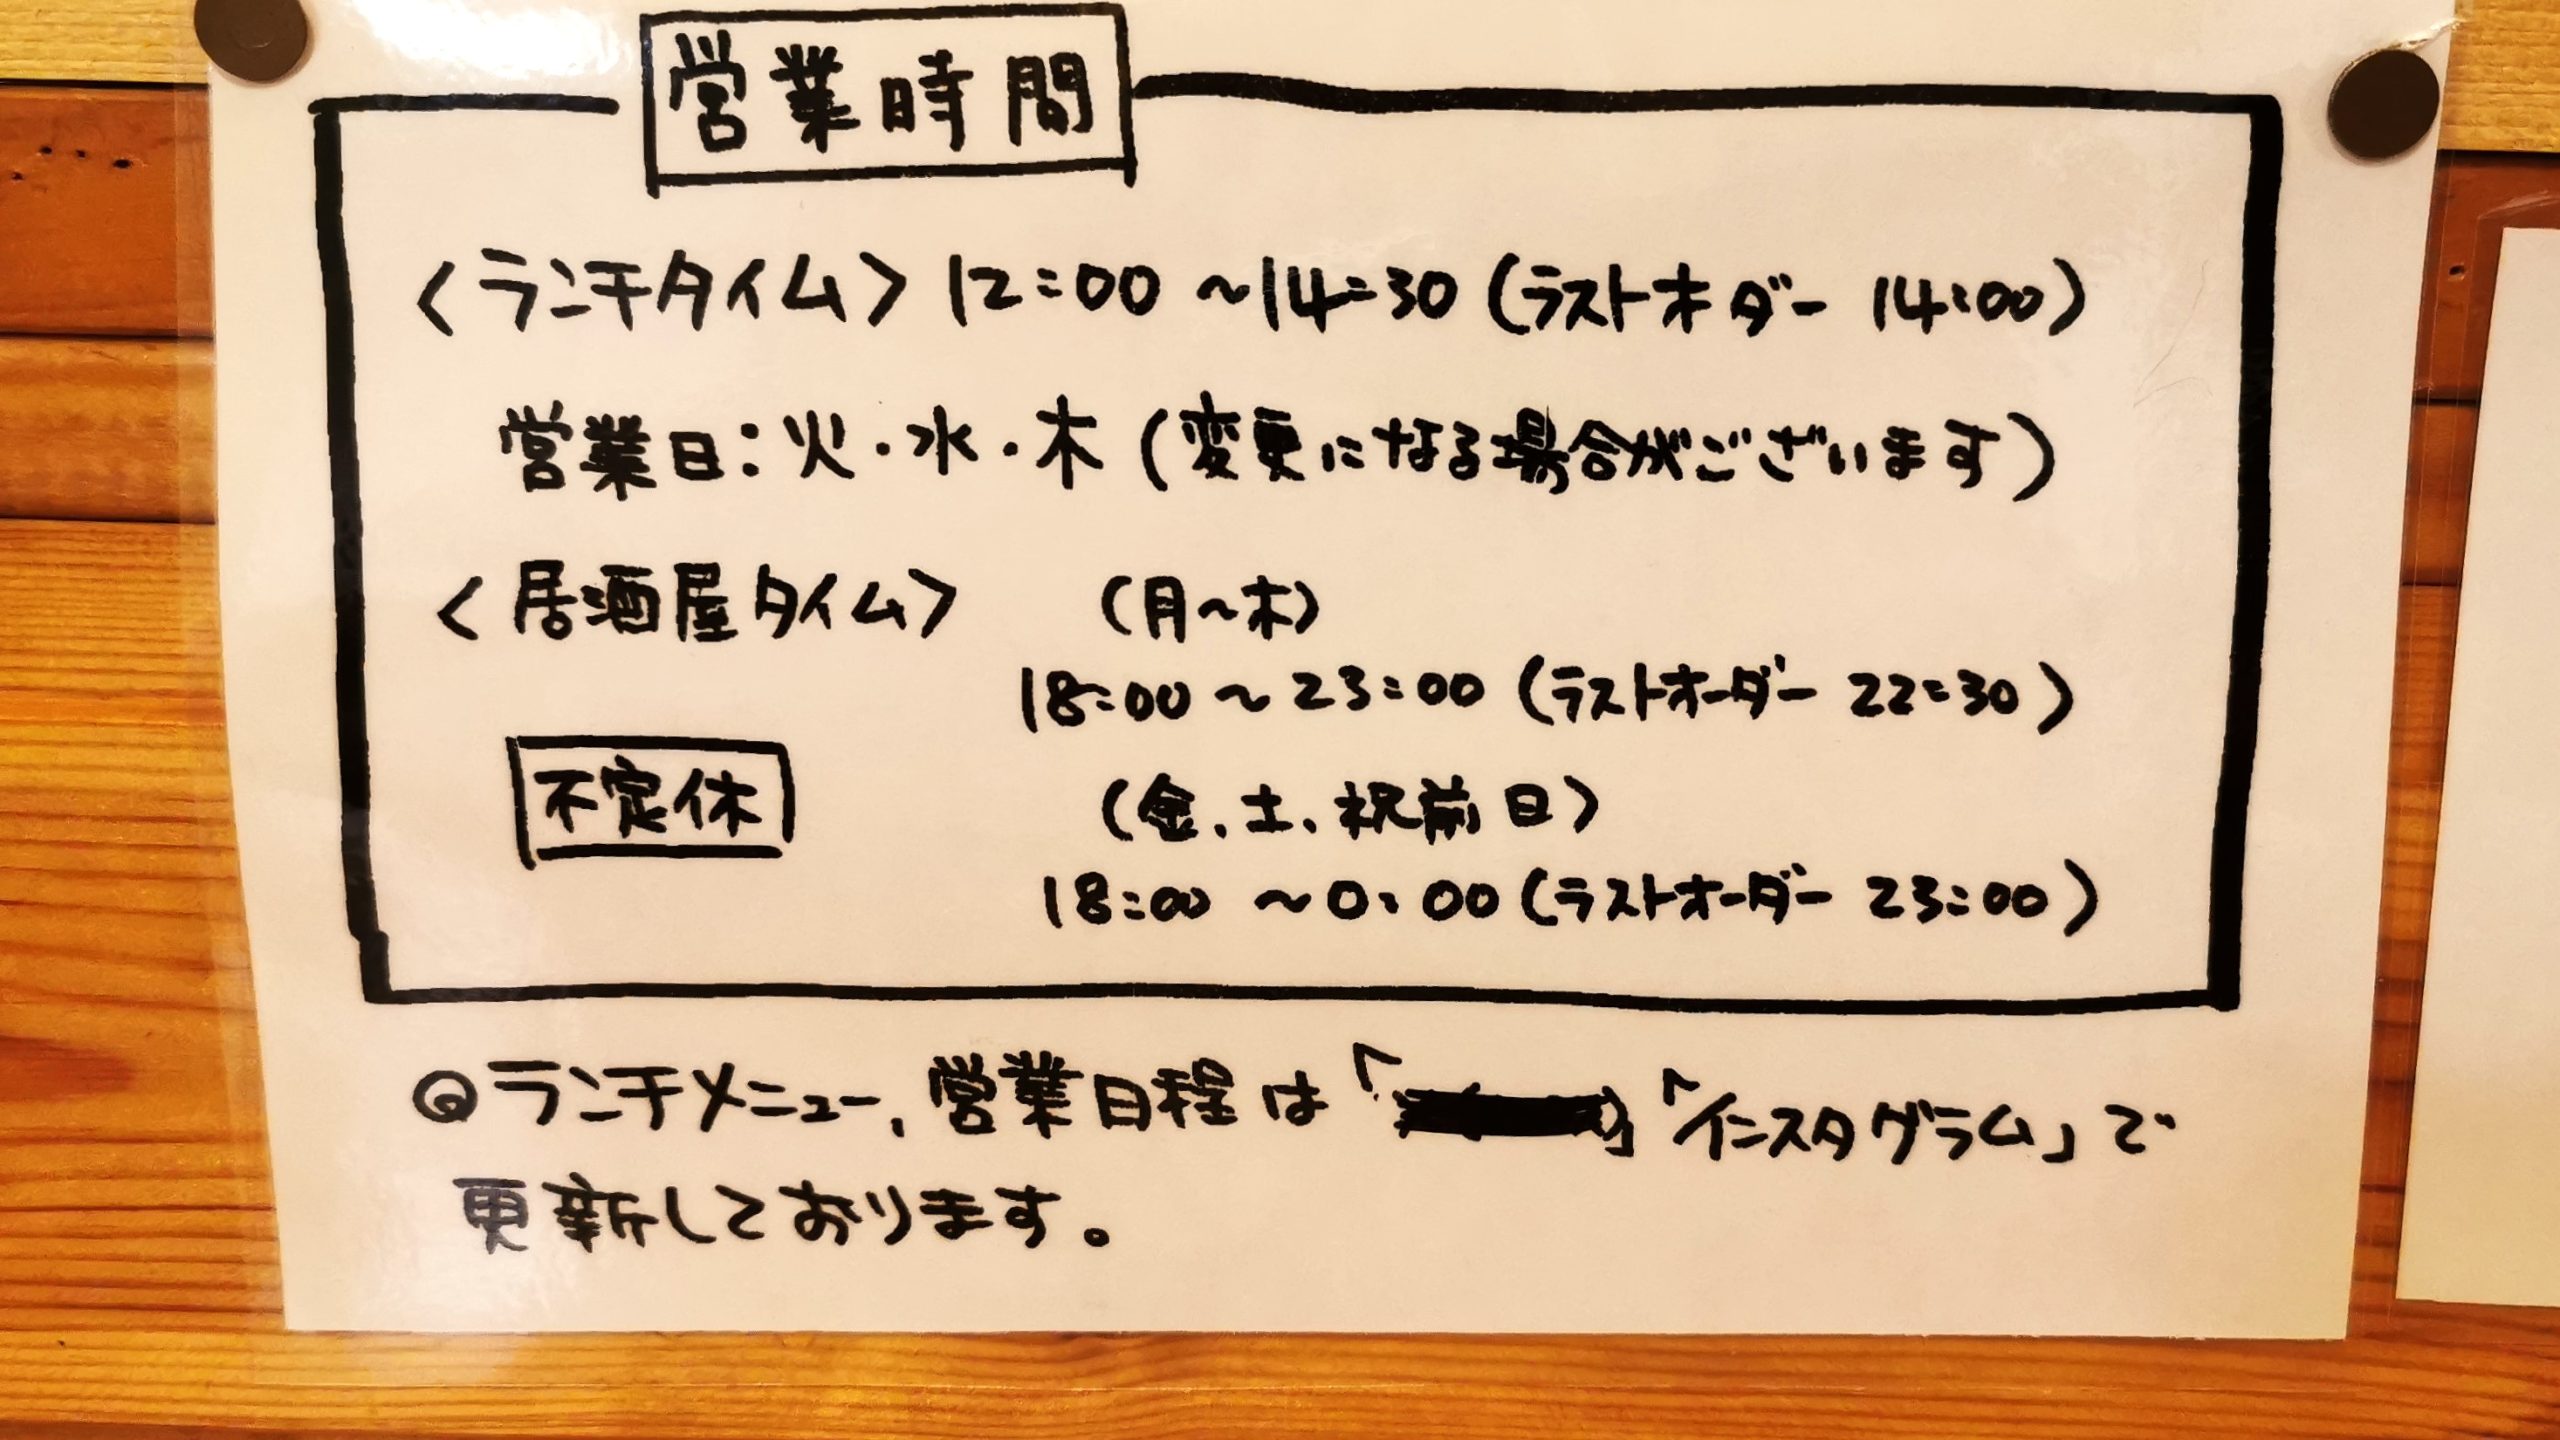 営業時間
<ランチタイム> 12:00 ～14:30 (ラストオーダー 14:00)
営業日:火・水・木 (変更になる場合がございます)
<居酒屋タイム> (月～木)
18:00 ～ 23:00 (ラストオーダー 22:30)
不定休
(金、土、祝前日)
18:00 ～0:00 (ラストオーダー 23:00)
◎ランチメニュー、営業日程は「 」「インスタグラム」で
更新しております。